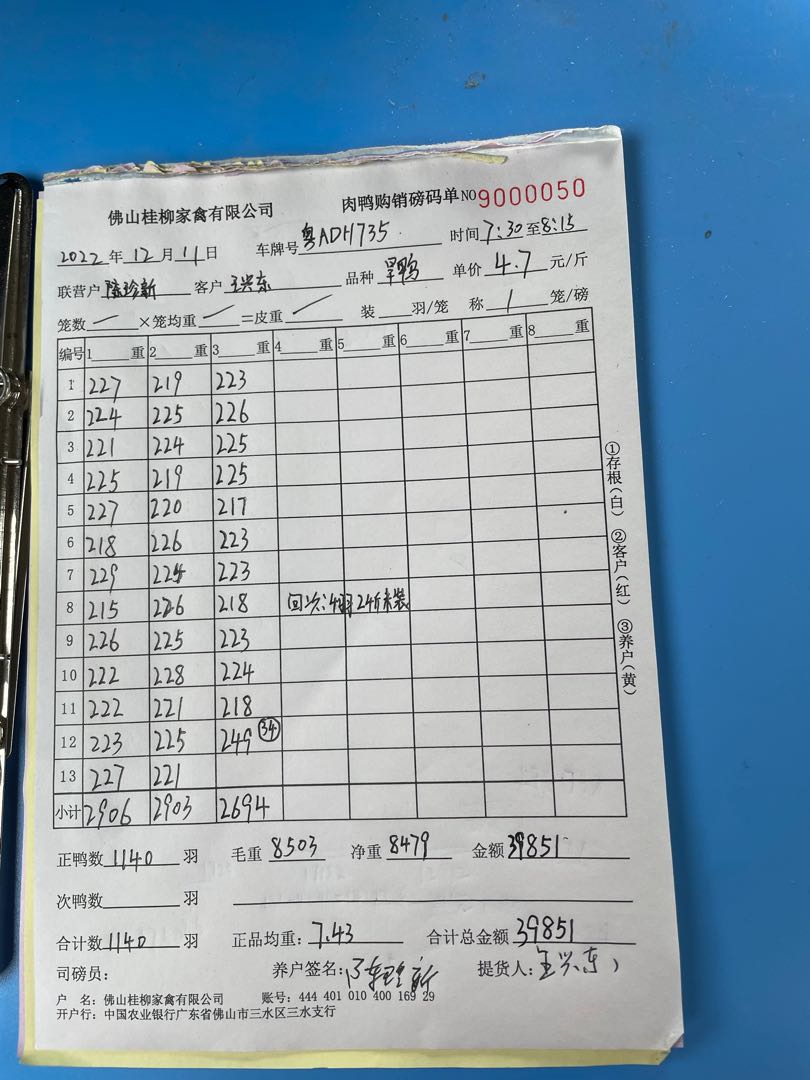 佛山桂柳家禽有限公司 肉鸭购销磅码单 NO 9000050
2022年12月11日 车牌号 粤ADH735 时间 7:30至8:15
联营户 陈珍新 客户 王兴东 品种 旱鸭 单价 4.7 元/斤
笼数 ×笼均重 =皮重 装 羽/笼 称 1 笼/磅
编号 1 重 2 重 3 重 4 重 5 重 6 重 7 重 8 重
1 227 219 223
2 224 225 226
3 221 224 225
4 225 219 225
5 227 220 217
6 218 226 223
7 229 224 223
8 215 226 218 回次:4羽24斤未装
9 226 225 223
10 222 228 224
11 222 221 218
12 223 225 249 34
13 227 221
小计 2906 2903 2694
①存根(白) ②客户(红) ③养户(黄)
正鸭数 1140 羽 毛重 8503 净重 8479 金额 39851
次鸭数 羽
合计数 1140 羽 正品均重: 7.43 合计总金额 39851
司磅员: 养户签名: 提货人: 王兴东
户 名: 佛山桂柳家禽有限公司 账号: 444 401 010 400 169 29
开户行: 中国农业银行广东省佛山市三水区三水支行